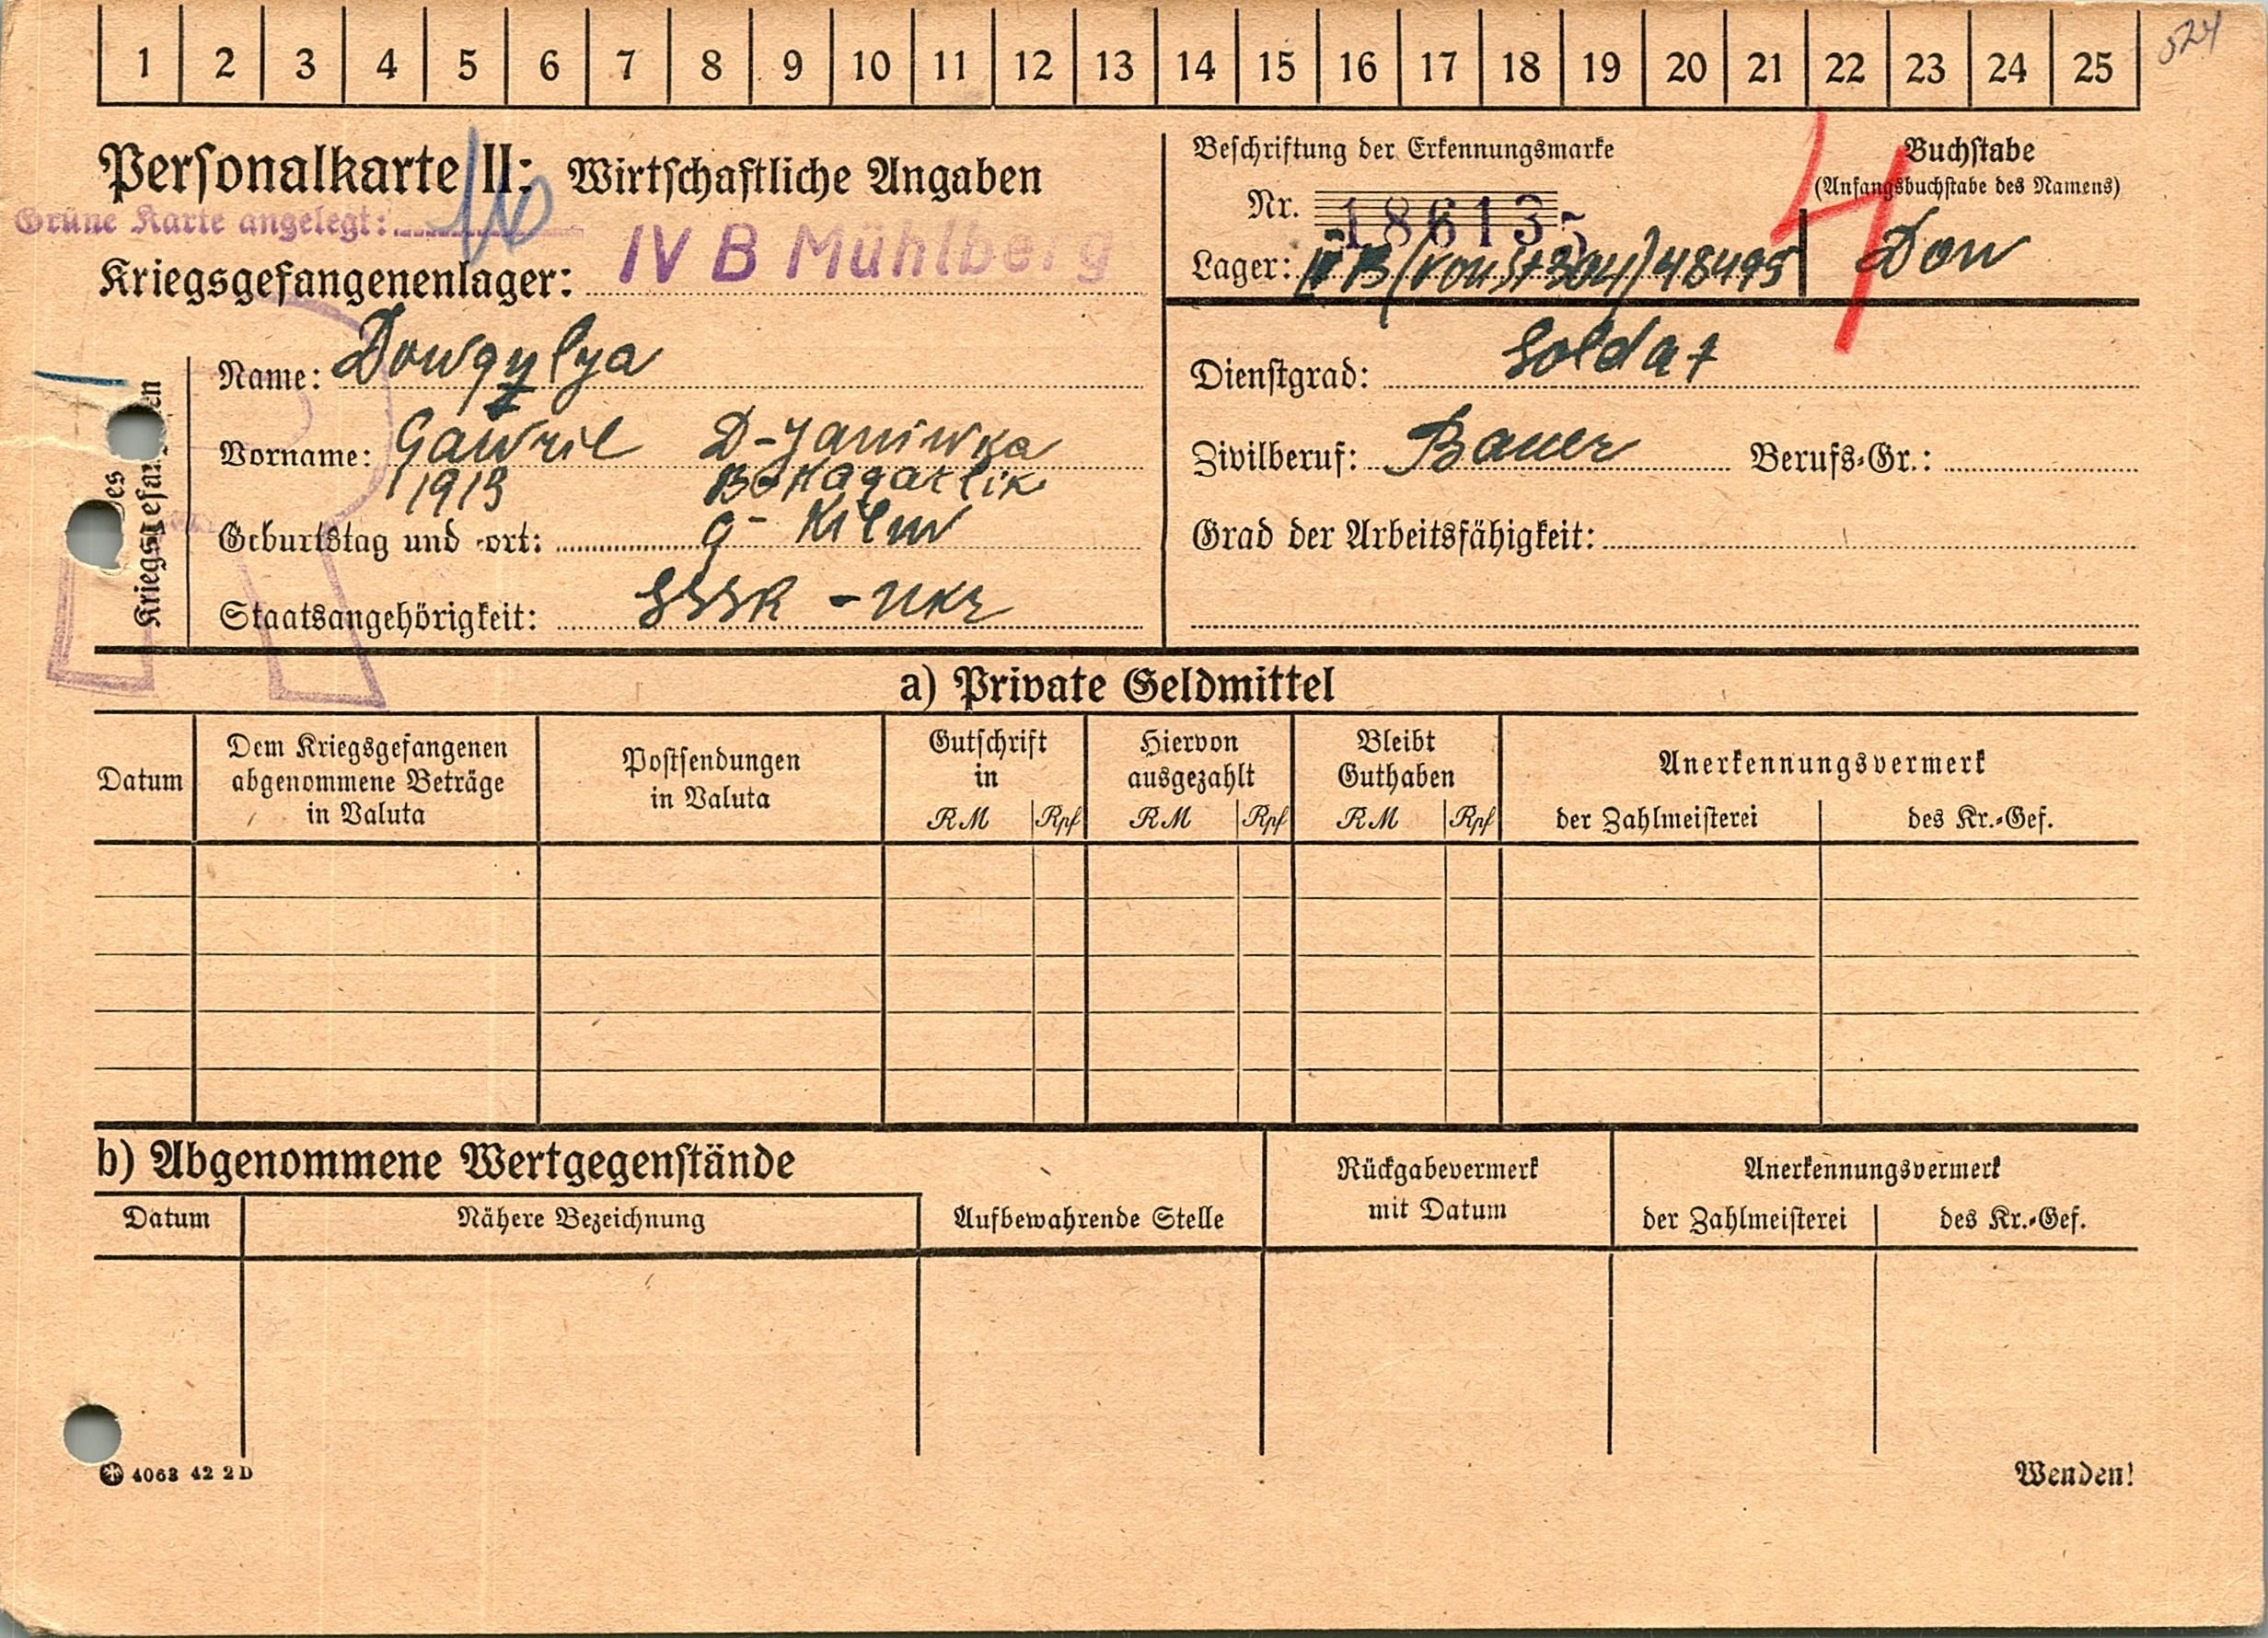 1 2 3 4 5 6 7 8 9 10 11 12 13 14 15 16 17 18 19 20 21 22 23 24 25
524
Personalkarte II: Wirtschaftliche Angaben
Grüne Karte angelegt:
Kriegsgefangenenlager: IV B Mühlberg
Beschriftung der Erkennungsmarke
Nr. 186135
Lager: IV B (von St 304) 48495
Buchstabe
(Anfangsbuchstabe des Namens)
Dow
4
Des Kriegsgefangenen
Name: Dowgylya
Vorname: Gawril D-Janiwka
1919 B-Kagarlik
Geburtstag und -ort: g- Kiew
Staatsangehörigkeit: SSSR - Ukr
Dienstgrad: Soldat
Zivilberuf: Bauer Berufs-Gr.:
Grad der Arbeitsfähigkeit:
a) Private Geldmittel
Datum
Dem Kriegsgefangenen
abgenommene Beträge
in Valuta
Postsendungen
in Valuta
Gutschrift
in
RM Rpf
Hiervon
ausgezahlt
RM Rpf
Bleibt
Guthaben
RM Rpf
Anerkennungsvermerk
der Zahlmeisterei des Kr.-Gef.
b) Abgenommene Wertgegenstände
Datum Nähere Bezeichnung Aufbewahrende Stelle
Rückgabevermerk
mit Datum
Anerkennungsvermerk
der Zahlmeisterei des Kr.-Gef.
4063 42 2 D
Wenden!